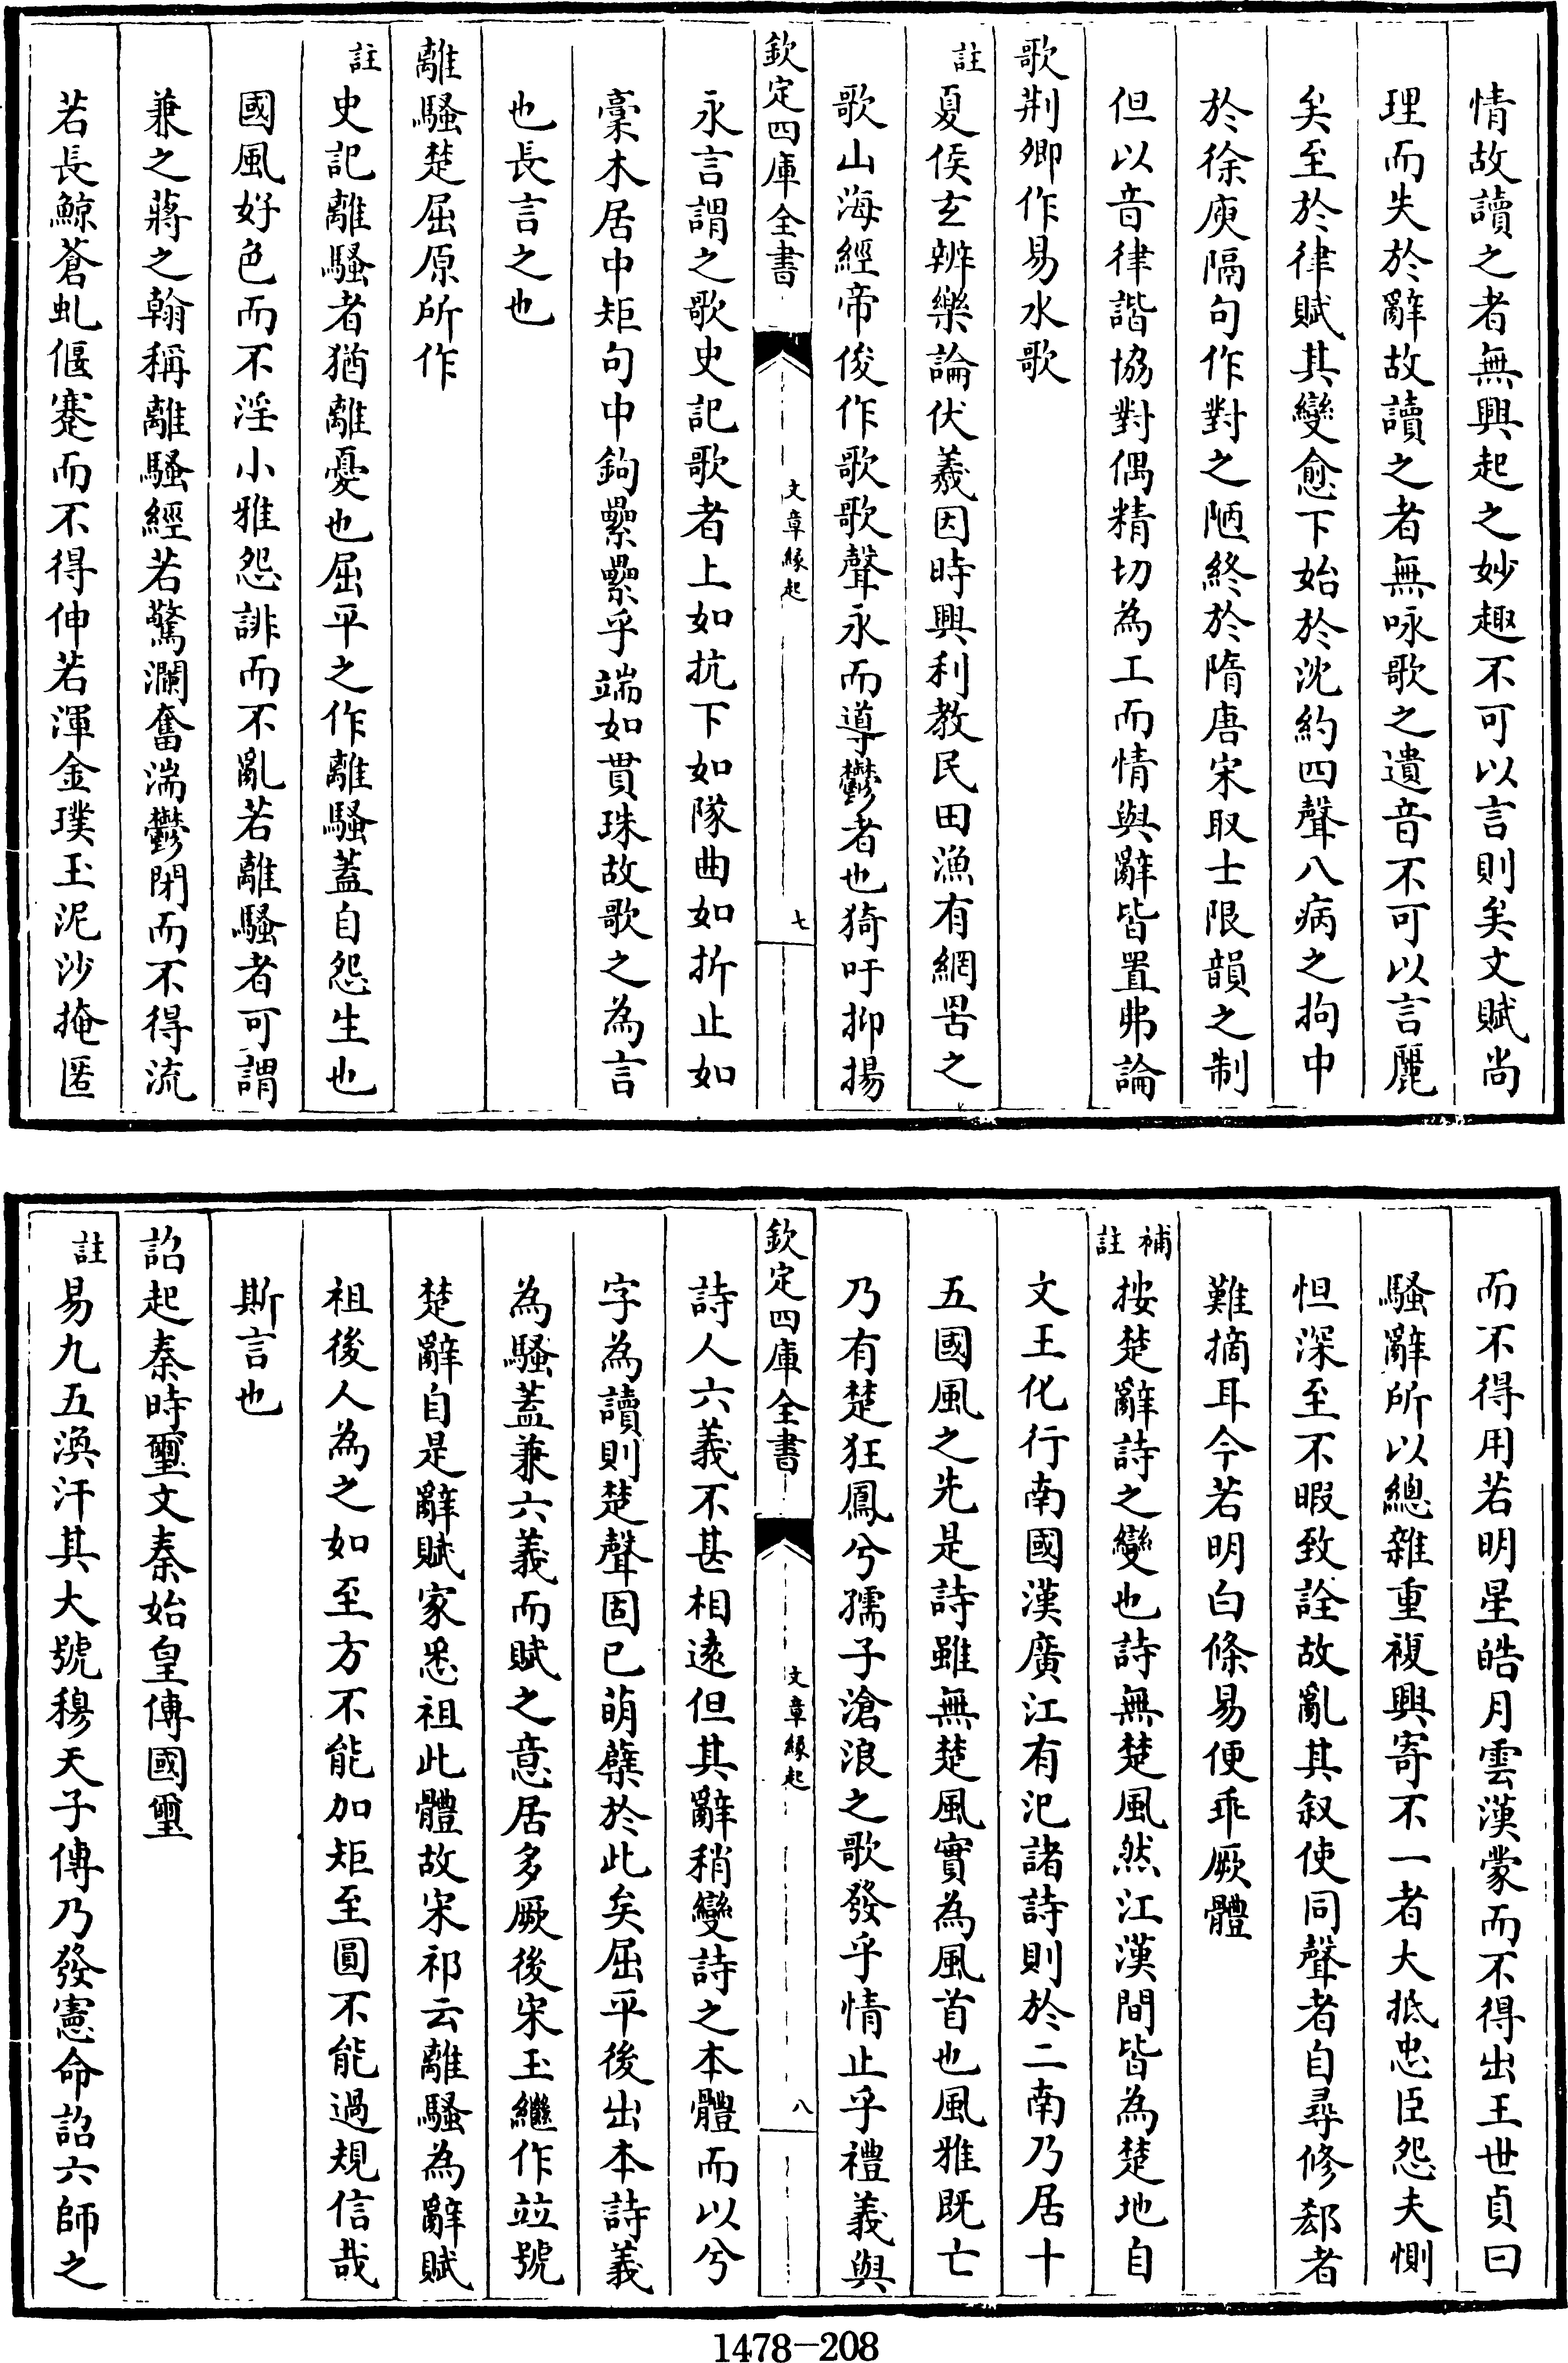 情故讀之者無興起之妙趣不可以言則矣文賦尚
理而失於辭故讀之者無咏歌之遺音不可以言麗
矣至於律賦其變愈下始於沈約四聲八病之拘中
於徐庾隔句作對之陋終於隋唐宋取士限韻之制
但以音律諧協對偶精切為工而情與辭皆置弗論
歌荆卿作易水歌
註夏侯玄辨樂論伏羲因時興利教民田漁有網罟之
歌山海經帝俊作歌歌聲永而導鬱者也猗吁抑揚
欽定四庫全書
文章緣起
七
永言謂之歌史記歌者上如抗下如隊曲如折止如
槀木居中矩句中鉤纍纍乎端如貫珠故歌之為言
也長言之也
離騷楚屈原所作
註史記離騷者猶離憂也屈平之作離騷蓋自怨生也
國風好色而不淫小雅怨誹而不亂若離騷者可謂
兼之蔣之翰稱離騷經若驚瀾奮湍鬱閉而不得流
若長鯨蒼虬偃蹇而不得伸若渾金璞玉泥沙掩匿
而不得用若明星皓月雲漢蒙而不得出王世貞曰
騷辭所以總雜重複興寄不一者大抵忠臣怨夫惻
怛深至不暇致詮故亂其叙使同聲者自尋修郄者
難摘耳今若明白條易便乖厥體
補註按楚辭詩之變也詩無楚風然江漢間皆為楚地自
文王化行南國漢廣江有汜諸詩則於二南乃居十
五國風之先是詩雖無楚風實為風首也風雅既亡
乃有楚狂鳳兮孺子滄浪之歌發乎情止乎禮義與
欽定四庫全書
文章緣起
八
詩人六義不甚相遠但其辭稍變詩之本體而以兮
字為讀則楚聲固已萌蘖於此矣屈平後出本詩義
為騷蓋兼六義而賦之意居多厥後宋玉繼作竝號
楚辭自是辭賦家悉祖此體故宋祁云離騷為辭賦
祖後人為之如至方不能加矩至圓不能過規信哉
斯言也
詔起秦時璽文秦始皇傳國璽
註易九五渙汗其大號穆天子傳乃發憲命詔六師之
1478-208